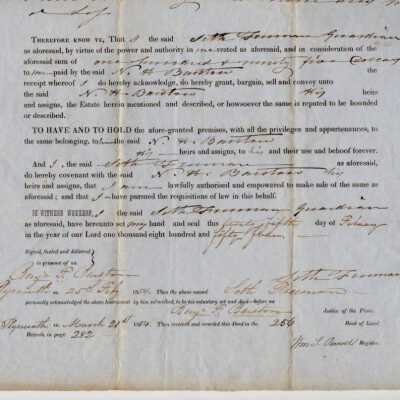 or less
THEREFORE KNOW YE, That I the said Seth Freeman Guardian
as aforesaid, by virtue of the power and authority in me vested as aforesaid, and in consideration of the
aforesaid sum of one hundred & ninety five
to me paid by the said N. H. Barstow the
receipt whereof I do hereby acknowledge, do hereby grant, bargain, sell and convey unto
the said N. H. Barstow His heirs
and assigns, the Estate herein mentioned and described, or howsoever the same is reputed to be bounded
or described.
TO HAVE AND TO HOLD the afore-granted premises, with all the privileges and appurtenances, to
the same belonging, to him the said N. H. Barstow
His heirs and assigns, to his and their use and behoof forever.
And I, the said Seth Freeman as aforesaid,
do hereby covenant with the said N. H. Barstow his
heirs and assigns, that I am lawfully authorised and empowered to make sale of the same as
aforesaid; and that I have pursued the requisitions of law in this behalf.
IN WITNESS WHEREOF, I the said Seth Freeman Guardian
as aforesaid, have hereunto set my hand and seal this twenty fifth day of
in the year of our Lord one thousand eight hundred and fifty
Signed, sealed and delivered
in presence of us
Seth Freeman
Plymouth ss 25th Feb 1854. Then the above named Seth Freeman
personally acknowledged the above instrument by him subscribed, to be his voluntary act and deed—before me
Justice of the Peace.
Plymouth ss March 1854. Then received and recorded this Deed in the 256 Book of Land
Records in page 282
Wm S. Register.